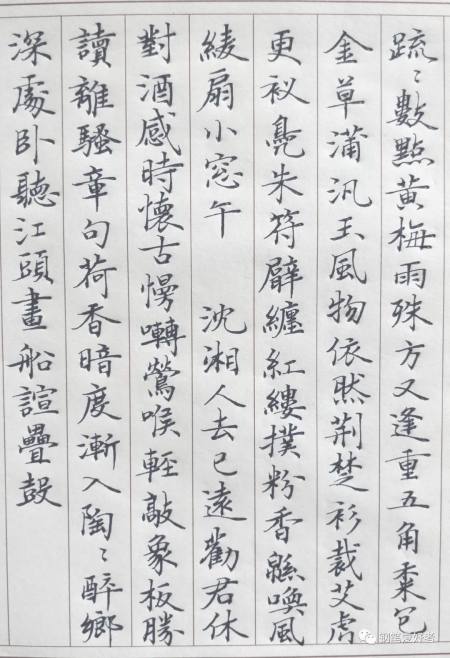 疏〻數點黃梅雨殊方又逢重五角黍包
金草蒲汎玉風物依然荊楚衫裁艾虎
更衩裊朱符臂纏紅縷撲粉香緜喚風
綾扇小窓午　沈湘人去已遠勸君休
對酒感時懷古慢囀鶯喉輕敲象板勝
讀離騷章句荷香暗度漸入陶〻醉鄉
深處卧聽江頭畫船諠疊鼓
钢笔爱好者